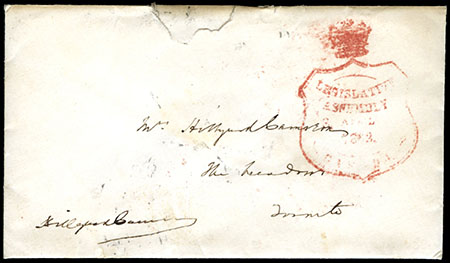 LEGISLATIVE
ASSEMBLY
Mrs Hillyard Cameron
The Meadows
Toronto
Hillyard Cameron